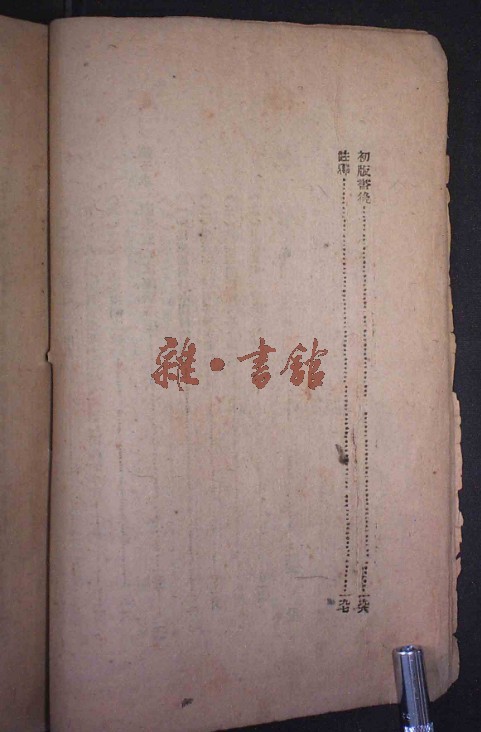 初版書後……一九六
註釋……一九七
雜·書館